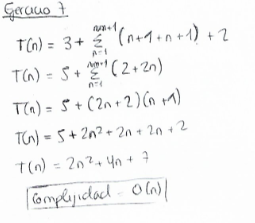 Ejercicio 7
T(n) = 3 + Σ (n+1+n+1) + 2
n=1
T(n) = 5 + Σ (2+2n)
n=1
T(n) = 5 + (2n+2)(n+1)
T(n) = 5 + 2n² + 2n + 2n + 2
T(n) = 2n² + 4n + 7
Complejidad = O(n)